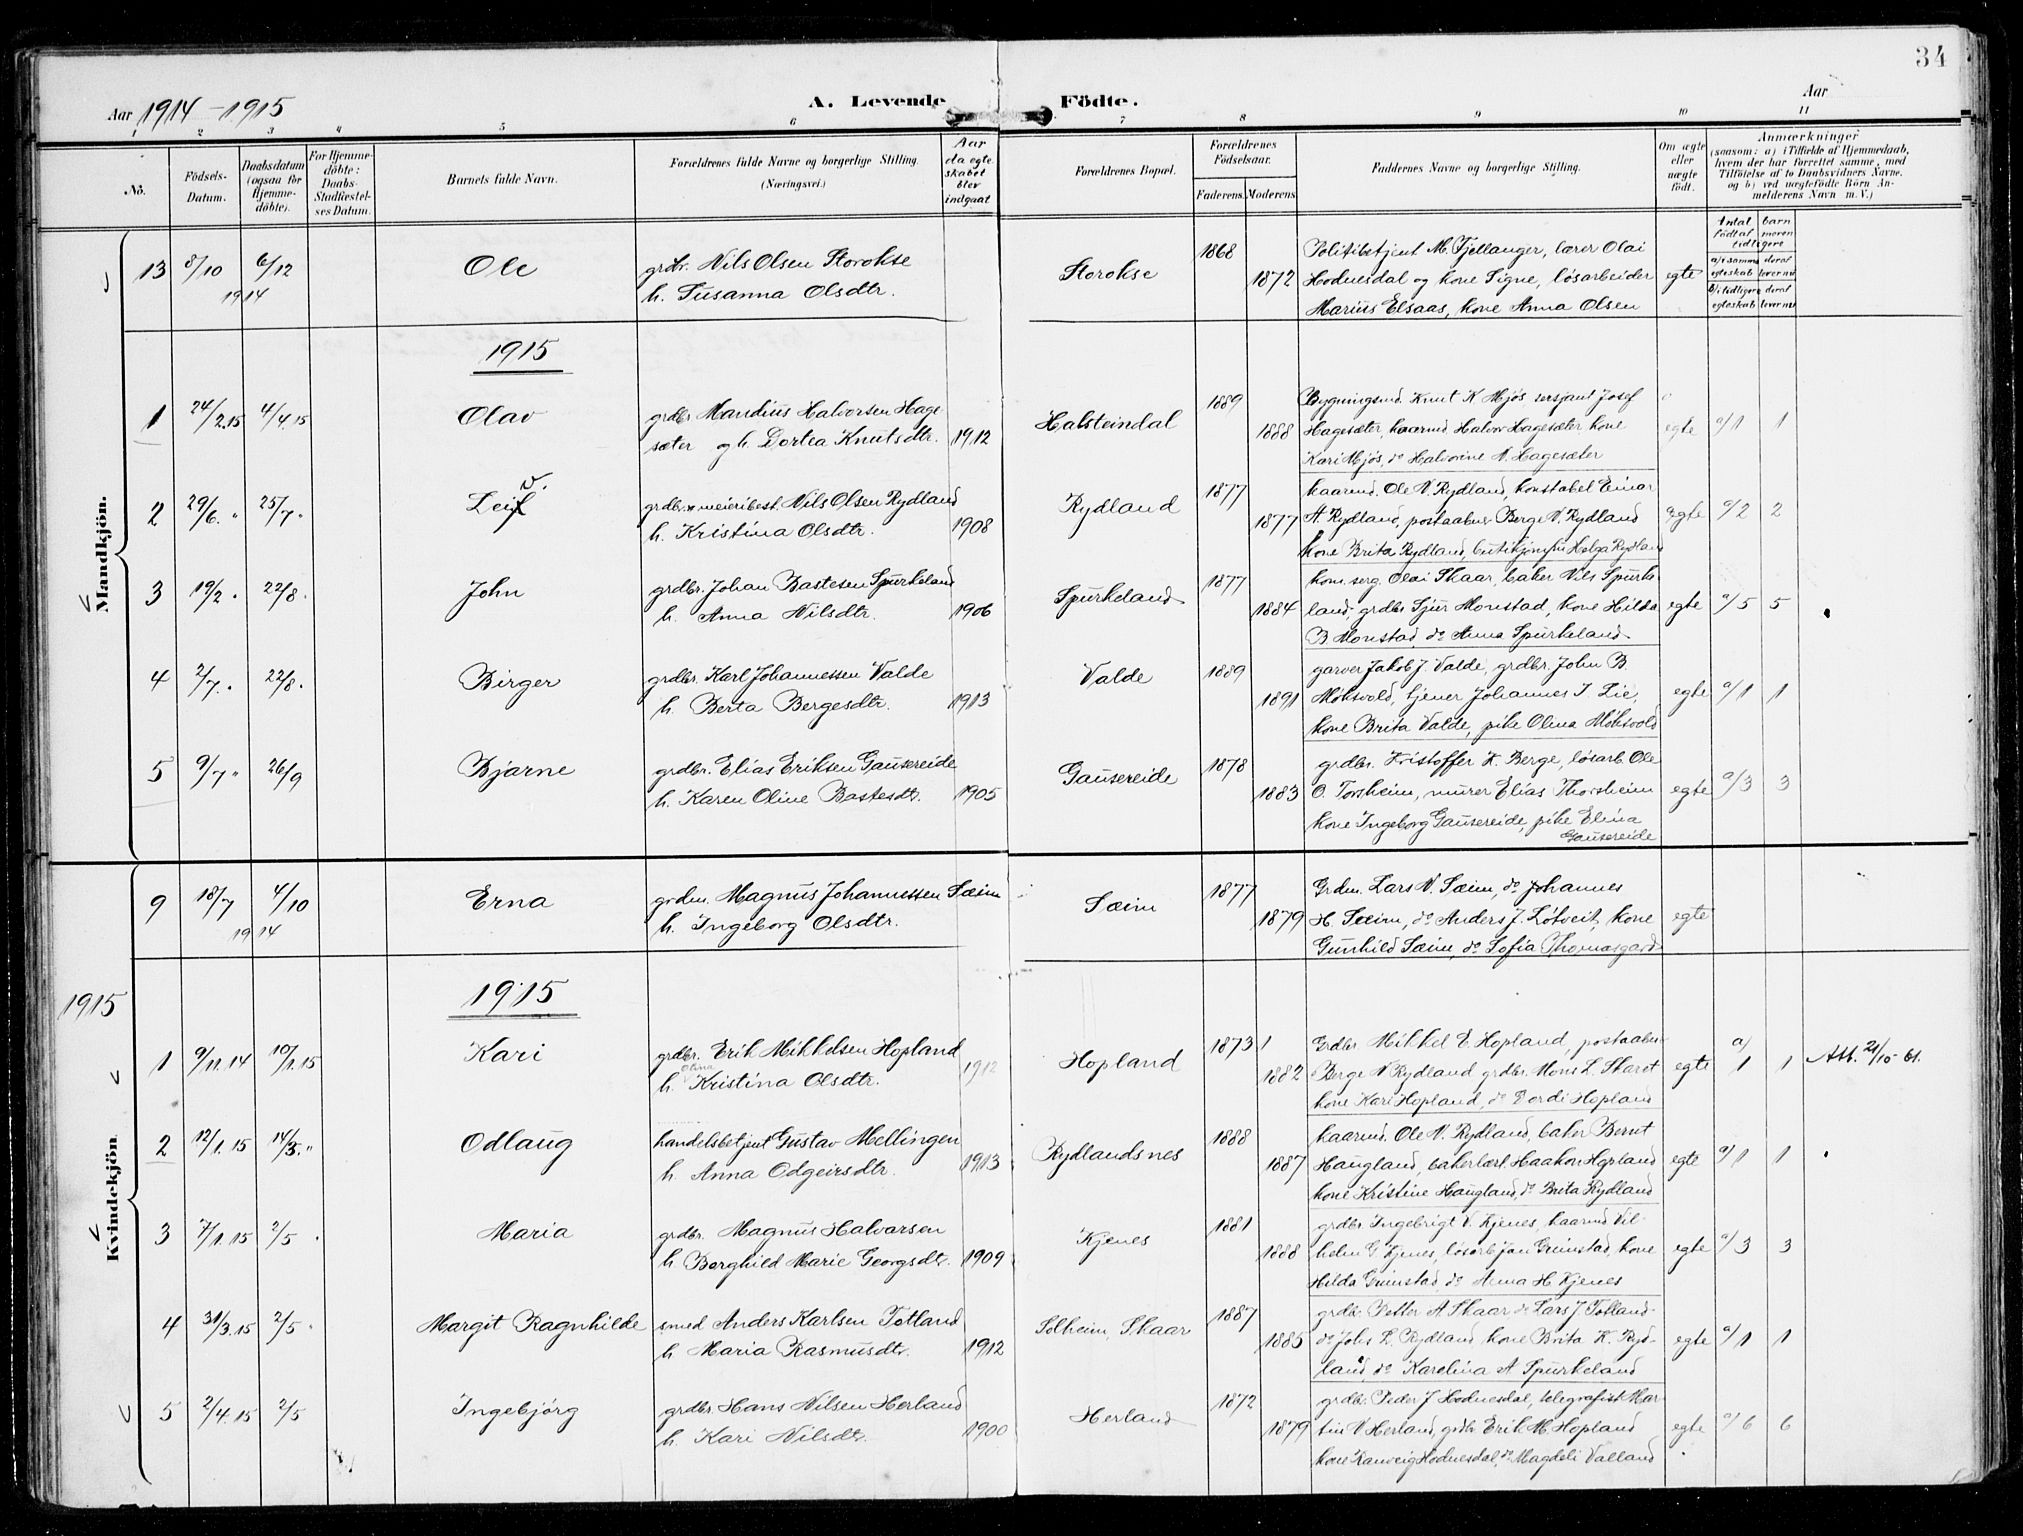 34
Aar 1914 - 1915
A. Levende Födte.
Aar
1 2 3 4 5 6 7 8 9 10 11
No.
Födsels-Datum.
Daabsdatum (ogsaa for Hjemme-döbte).
For Hjemme-döbte: Daabs-Stadfæstel-ses Datum.
Barnets fulde Navn.
Forældrenes fulde Navne og borgerlige Stilling. (Næringsvei.)
Aar da egte skabet blev indgaat
Forældrenes Bopæl.
Forældrenes Födselsaar.
Faderens. Moderens.
Faddernes Navne og borgerlige Stilling.
Om ægte eller uægte födt.
Anmærkninger
(saasom: a) i Tilfælde af Hjemmedaab, hvem der har forrettet samme, med Tilföielse af to Daabsvidners Navne. og b) ved uægtefödte Börn An-melderens Navn m. V.)
Antal barn
födt af moren
tidligere
a/i samme deraf
egteskab lever nu
b/i tidligere deraf
egteskab lever nu
Mandkjön.
13 8/10 6/12 Ole grdbr. Nils Olsen Storokse Storokse 1868 Politibetjent M. Fjellanger, lærer Olai
1914 h. Susanna Olsdtr. 1872 Hodnesdal og kone Signe, løsarbeider egte
Marius Elsaas, kone Anna Olsen
1915
1 24/2.15 4/4.15 Olav grdbr. Mandius Halvorsen Hage- Halsteindal 1889 Bygningsmd. Knut K. Mjøs sersjant Josef
sæter og h. Dortea Knutsdtr. 1912 1888 Hagesæter, kaarmd Halvor Hagesæter kone egte a/1 1
Kari Mjøs, do Halvorine N. Hagesæter
2 29/6. " 25/7 " Leiv. grdbr. & meieribest. Nils Olsen Rydland Rydland 1877 kaarmd. Ole N. Rydland, konstabel Einar
h. Kristina Olsdtr. 1908 1877 A. Rydland, postaabner Berge N. Rydland egte a/2 2
kone Brita Rydland, butikjomfru Helga Rydland
3 19/2 . 22/8 . John grdbr. Johan Bastesen Spurkeland Spurkeland 1877 kom. serg. Olai Skaar, baker Nils Spurke-
h. Anna Nilsdtr. 1906 1884 land, grdbr Sjur Monstad, kone Hilda egte a/5 5
B Monstad, do Anna Spurkeland
4 2/7. . 22/8 . Birger grdbr. Karl Johannessen Valde Valde 1889 garver Jakob J. Valde, grdbr. John B.
h. Berta Bergesdtr. 1913 1891 Möksvold, tjener Johannes I. Lie, egte a/1 1
kone Brita Valde, pike Olina Möksvold
5 9/7 " 26/9 Bjarne grdbr. Elias Eriksen Gausereide Gausereide 1878 grdbr. Kristoffer K. Berge, løsarb. Ole
h. Karen Oline Bastesdtr. 1905 1883 O. Torsheim, murer Elias Thorsheim egte a/3 3
kone Ingeborg Gausereide, pike Elina
Gausereide
Kvindekjön
9 18/7 4/10 Erna grdm. Magnus Johannessen Sæim Sæim 1877 Grdm. Lars N. Sæim, do Johannes
1914 h. Ingeborg Olsdtr. 1879 H. Sæim, do Anders J. Lötveit, kone egte
Gunhild Sæim, do Sofia Thomasgard
1915
1915
1 9/11.14 10/1.15 Kari grdbr. Erik Mikkelsen Hopland Hopland 1873 Grdbr Mikkel E. Hopland, postaabn. a)
Olina
h. Kristina Olsdtr. 1912 1882 Berge N Rydland grdbr. Mons L Skaret egte 1 1 Att. 21/10-61.
kone Kari Hopland, do Dordi Hopland
2 12/1.15 14/3. " Odlaug handelsbetjent Gustav Mellingen Rydlandsnes 1888 kaarmd. Ole N. Rydland, baker Bernt
h. Anna Odgeirsdtr. 1913 1887 Haugland, bakerlærl. Haakon Hopland egte a/1 1
kone Kristine Haugland, do Brita Rydland
3 7/1.15 2/5 . Maria grdbr. Magnus Halvarsen Kjenes 1881 grdbr Ingebrigt V. Kjenes, kaarmd Vil-
h. Borghild Marie Georgsdtr. 1909 1888 helm G Kjenes, løsarb Jan Grimstad, kone egte a/3 3
Hilda Grimstad do Anna H. Kjenes
4 31/3.15 2/5 . Margit Ragnhilde smed Anders Karlsen Totland Solheim, Skaar 1887 grdbr. Petter A Skaar do Lars J. Totland
h. Maria Rasmusdtr. 1912 1885 do Johs L. Rydland, kone Brita K. Ryd- egte a/1 1
land, do Karelina A Spurkeland
5 2/4.15 2/5 Ingebjörg grdbr Hans Nilsen Herland Herland 1872 grdbr. Peder J Hodnesdal, telegrafist Mar-
h. Kari Nilsdtr. 1900 1879 tin N Herland, grdbr Erik M. Hopland egte a/6 6
kone Ranveig Hodnesdal, do Magdeli Valland